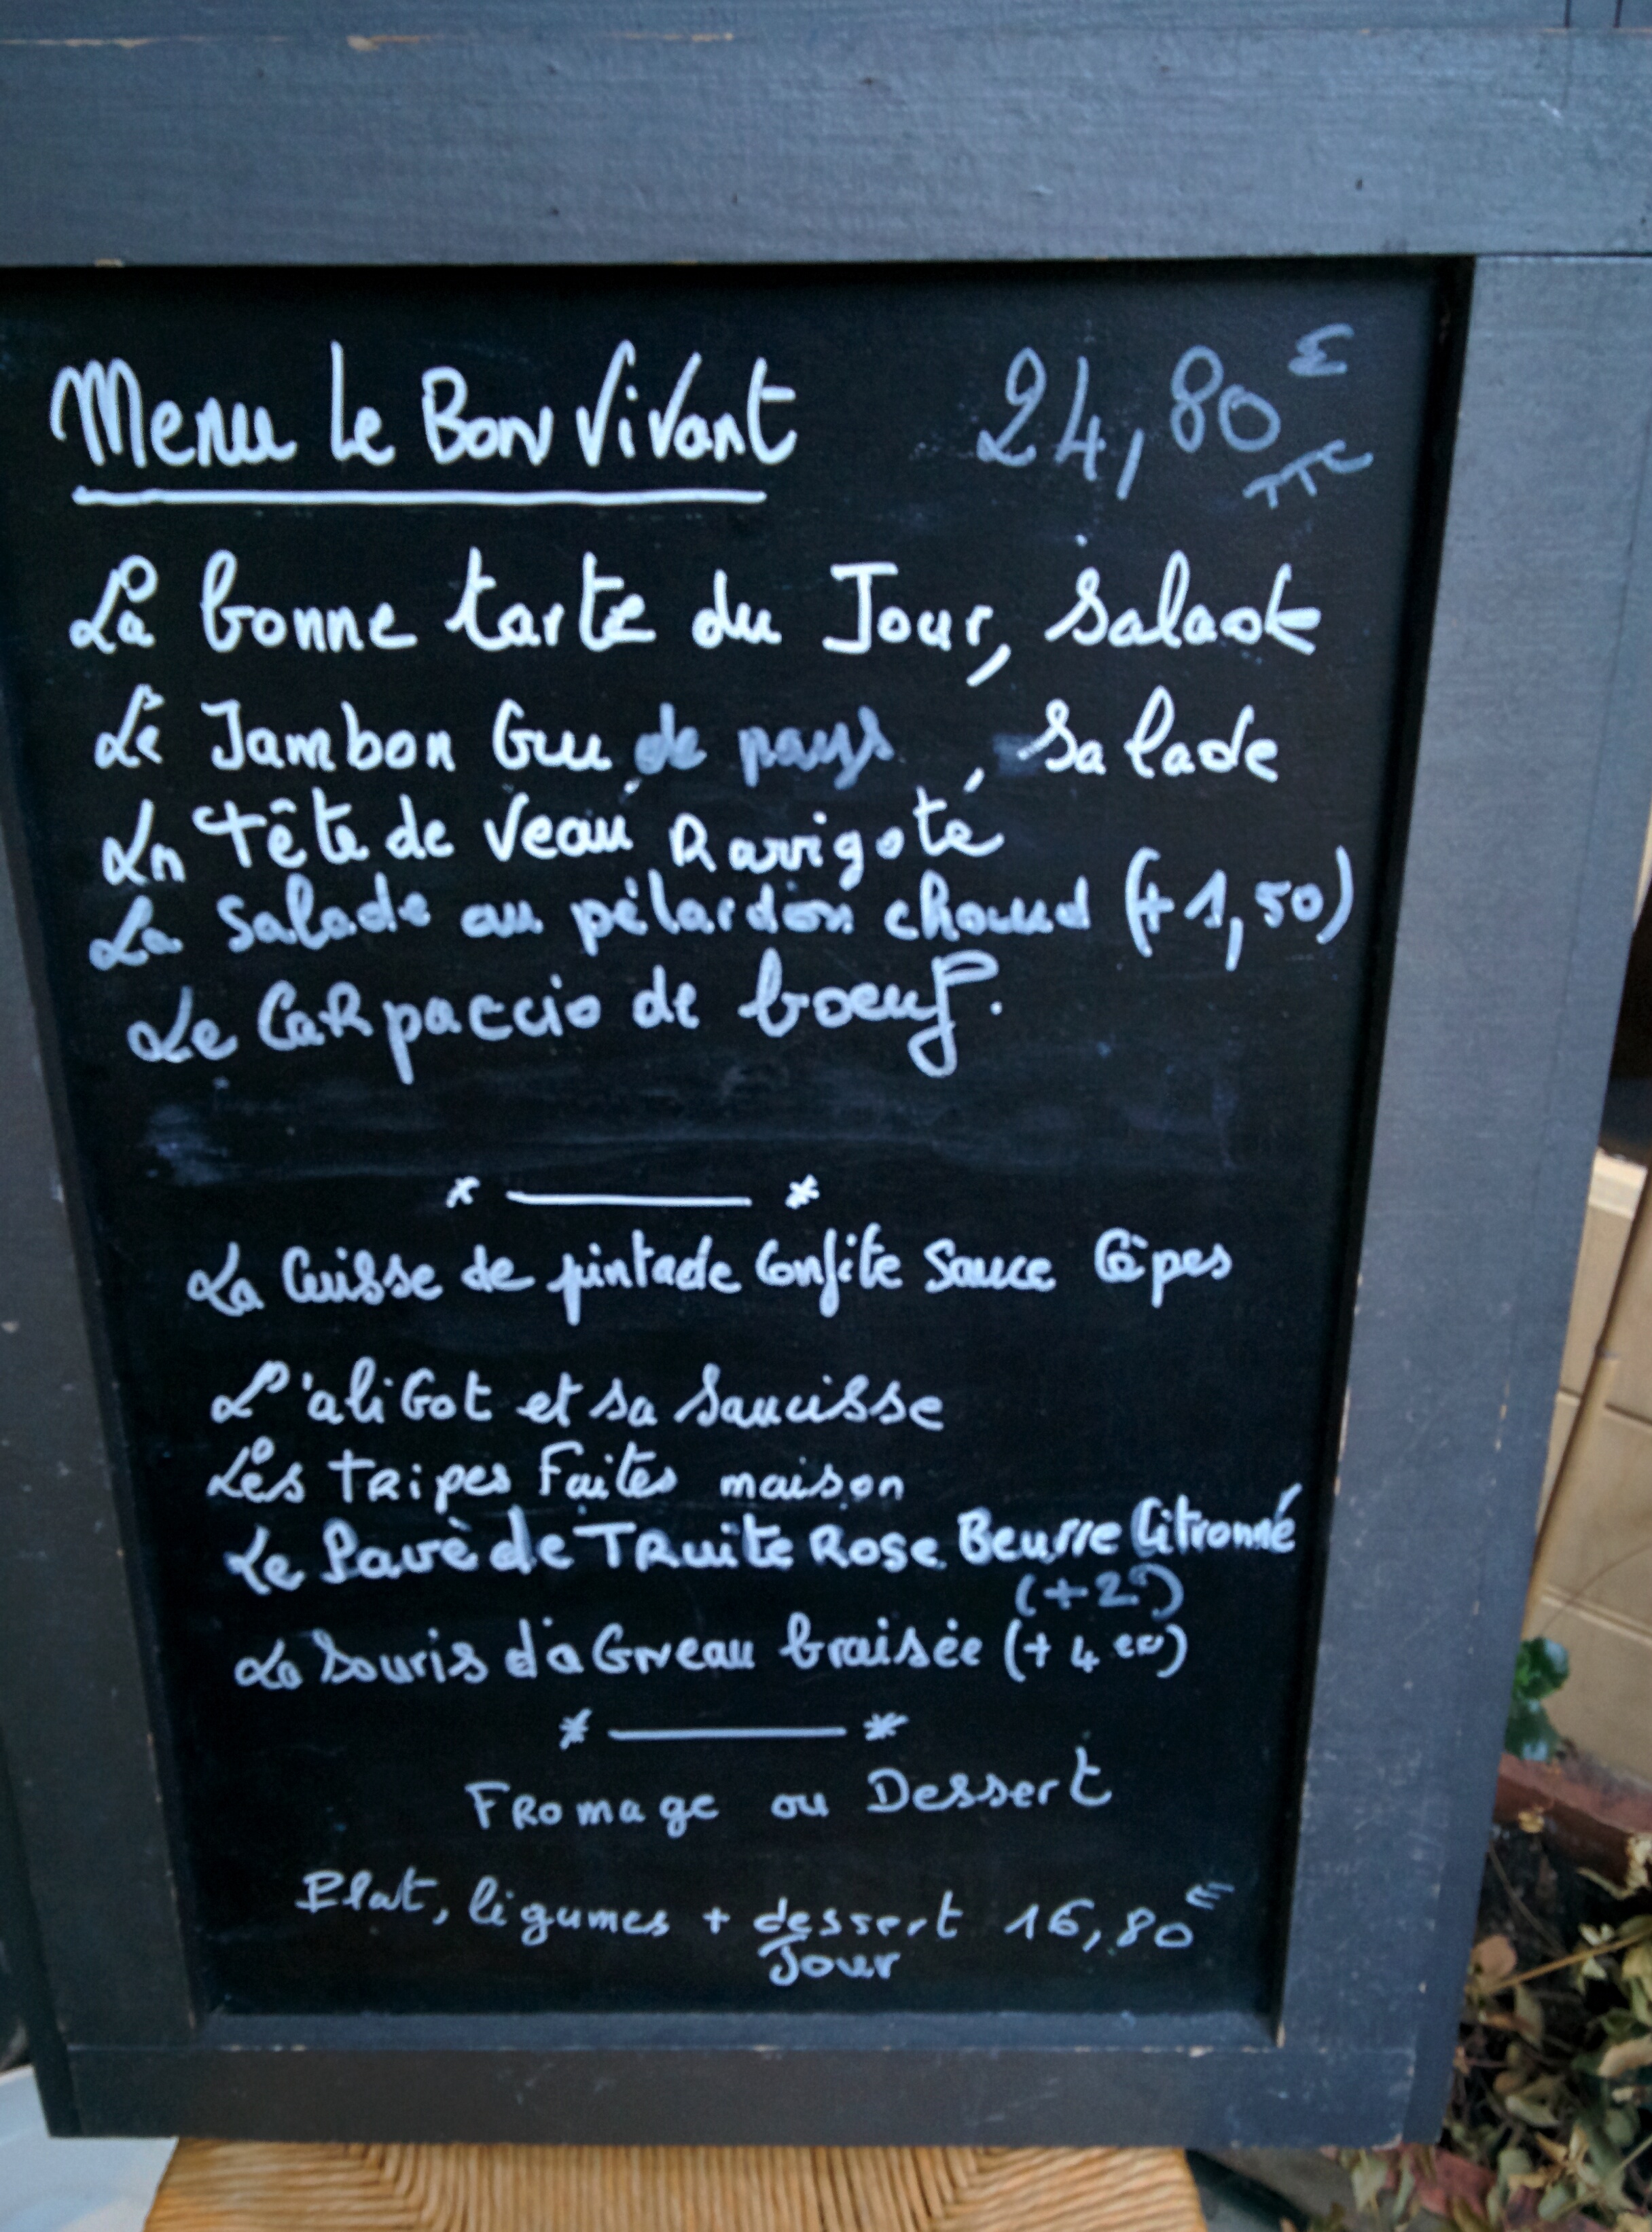 Menu Le Bon Vivant 24,80€ TTC
La bonne tarte du Jour, Salade
Le Jambon Cru de pays, Salade
La Tête de Veau Ravigote
La Salade au pélardon chaud (+1,50)
Le Carpaccio de boeuf.
* — *
La Cuisse de pintade Confite Sauce Cèpes
L'aliGot et sa Saucisse
Les Tripes Faites maison
Le Pavè de Truite Rose Beurre Citronné
(+2€)
La Souris d'aGneau braisée (+4€00)
* — *
Fromage ou Dessert
Plat, légumes + dessert 16,80€
Jour